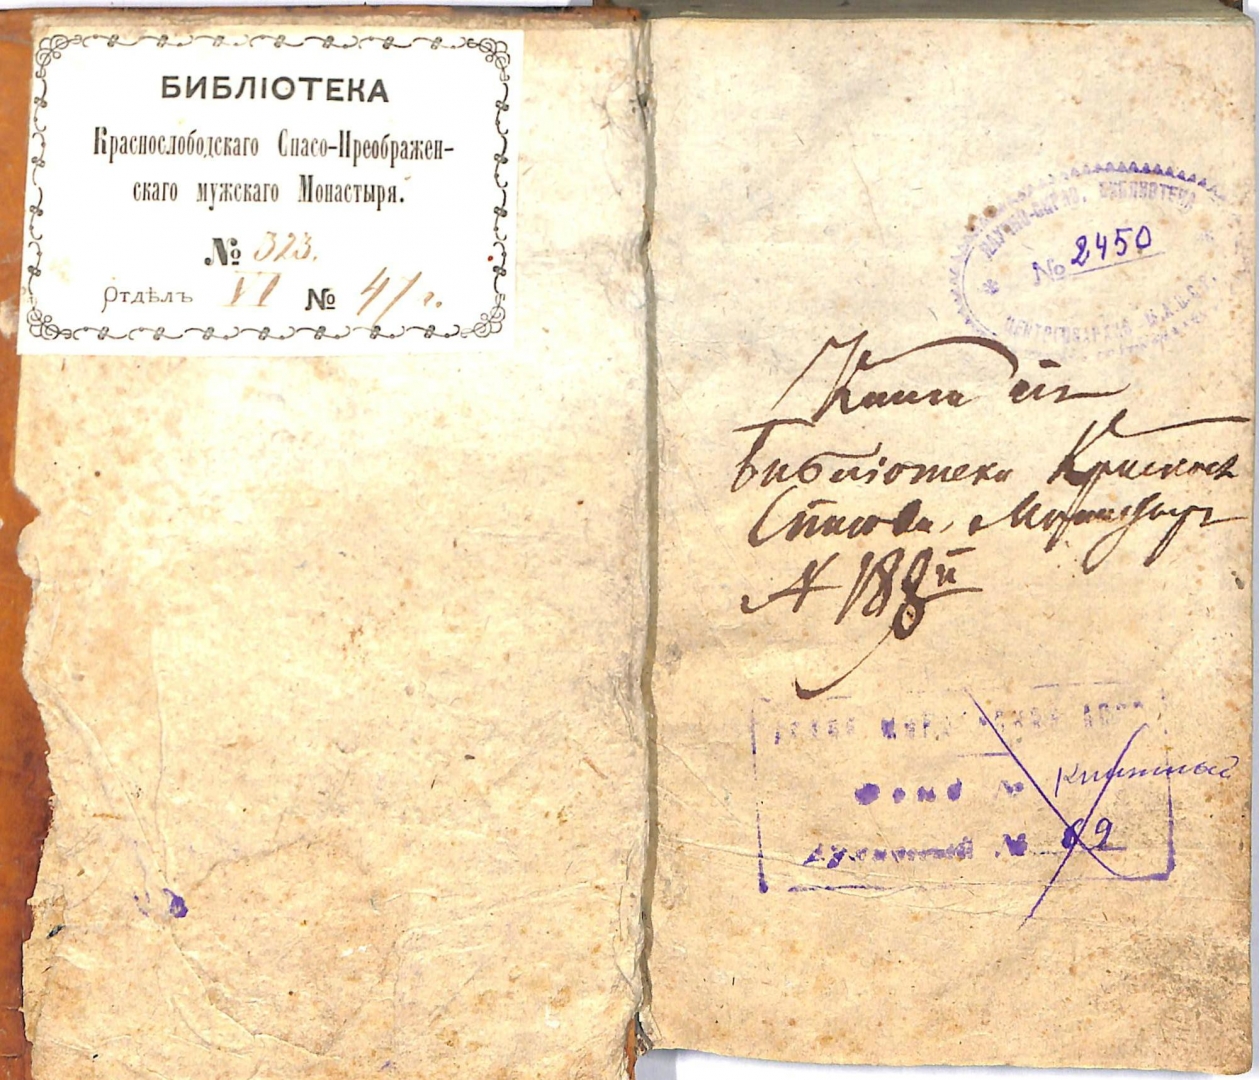 БИБЛІОТЕКА
Краснослободскаго Спасо-Преображен-
скаго мужскаго Монастыря.
№ 323.
Отдѣлъ VI № 41/г.
НАУЧНО-СПРАВ. БИБЛИОТЕКА
№ 2450
Книга сія
Библіотеки Краснос
Спасова, Монастыря
№ 188й
Фонд № книжный
№ 69